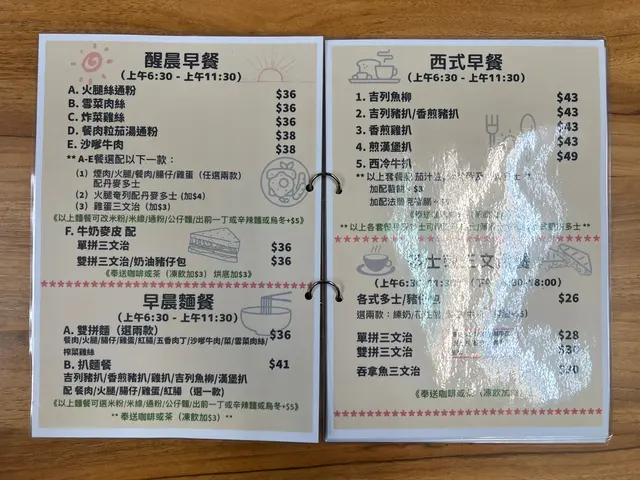 醒晨早餐
(上午6:30 - 上午11:30)
A. 火腿絲通粉 $36
B. 雪菜肉絲 $36
C. 炸菜雞絲 $36
D. 餐肉粒茄湯通粉 $38
E. 沙嗲牛肉 $38
** A-E餐選配以下一款:
(1) 煙肉/火腿/餐肉/腸仔/雞蛋 (任選兩款)
配丹麥多士
(2) 火腿奄列配丹麥多士 (加$4)
(3) 雞蛋三文治 (加$3)
《以上麵餐可改米粉/米線/通粉/公仔麵/出前一丁或辛辣麵或烏冬+$5》
F. 牛奶麥皮 配
單拼三文治 $36
雙拼三文治/奶油豬仔包 $36
《奉送咖啡或茶 (凍飲加$3) 烘底加$3》
早晨麵餐
(上午6:30 - 上午11:30)
A. 雙拼麵 (選兩款) $36
餐肉/火腿/腸仔/雞蛋/紅腸/五香肉丁/沙嗲牛肉/菜/雪菜肉絲/
榨菜雞絲
B. 扒麵餐 $41
吉列豬扒/香煎豬扒/雞扒/吉列魚柳/漢堡扒
配 餐肉/火腿/腸仔/雞蛋/紅腸 (選一款)
《以上麵餐可選米粉/米線/通粉/公仔麵/出前一丁或辛辣麵或烏冬+$5》
** 奉送咖啡或茶 (凍飲加$3) **
西式早餐
(上午6:30 - 上午11:30)
1. 吉列魚柳 $43
2. 吉列豬扒/香煎豬扒 $43
3. 香煎雞扒 $43
4. 煎漢堡扒 $43
5. 西冷牛扒 $49
** 以上套餐
加配薯餅 $3
加配法蘭
《奉送
** 以上各套餐
三文
(上午6:30 18:00)
各式多士/豬 包 $26
選兩款: 練奶/花生
單拼三文治 $28
雙拼三文治 $30
吞拿魚三文治 $30
《奉送咖啡或茶 (凍飲加